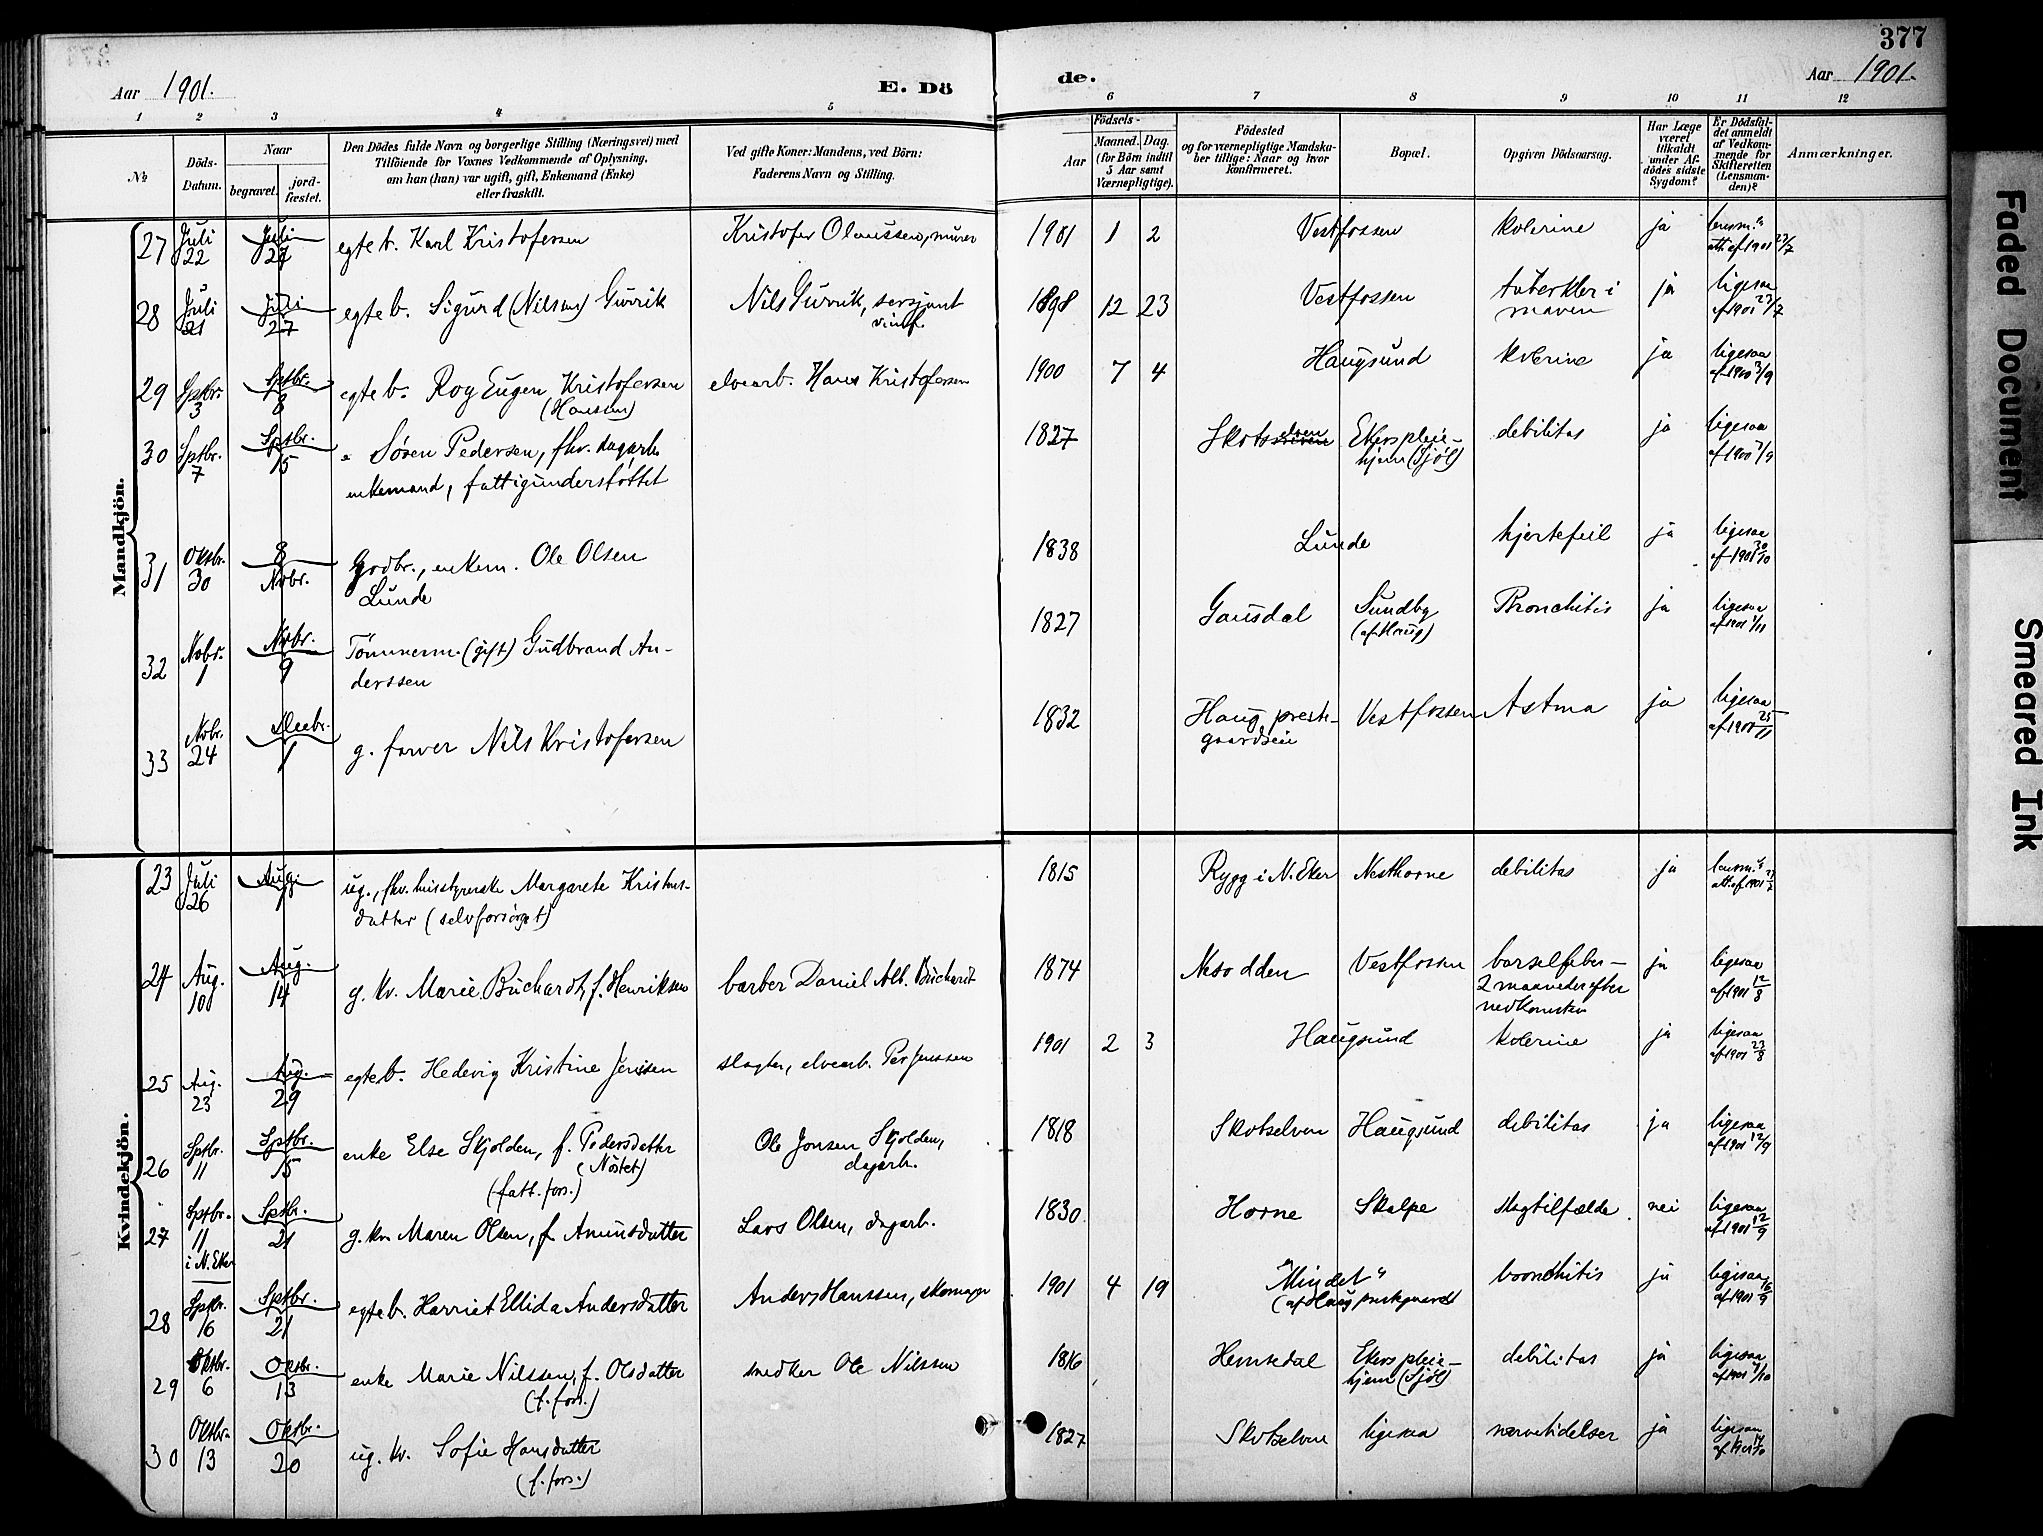 377
Aar 1901.
E. Dö
de.
Aar 1901.
1 2 3 4 5 6 7 8 9 10 11 12
№
Döds-
Datum.
Naar
begravet.
jord-
fæstet.
Den Dödes fulde Navn og borgerlige Stilling (Næringsvei) med
Tilföiende for Voxnes Vedkommende af Oplysning,
om han (hun) var ugift, gift, Enkemand (Enke)
eller fraskilt.
Ved gifte Koner: Mandens, ved Börn:
Faderens Navn og Stilling.
Födsels-
Aar
Maaned.
Dag.
(for Börn indtil
5 Aar samt
Værnepligtige).
Födested
og for værnepligtige Mandska-
ber tillige: Naar og hvor
konfirmeret.
Bopæl.
Opgiven Dödsaarsag.
Har Læge
været
tilkaldt
under Af-
dödes sidste
Sygdom?
Er Dödsfal-
det anmeldt
af Vedkom-
mende for
Skifteretten
(Lensman-
den)?
Anmærkninger.
Mandkjön.
27 Juli 22 Juli 27 egte b. Karl Kristofersen Kristofer Olaussen, murer 1901 1 2 Vestfossen kolerine ja lensm.s att. af 1901 23/7
28 Juli 21 Juli 27 egte b. Sigurd (Nilsen) Gurrik Nils Gurrik, sersjant 1898 12 23 Vestfossen tuberkler i maven ja ligesaa af 1901 23/7
29 Sptbr. 3 Sptbr. 8 egte b. Roy Eugen Kristofersen (Hansen) elvearb. Hans Kristofersen 1900 7 4 Haugsund kolerine ja ligesaa af 1900 3/9
30 Sptbr. 7 Sptbr. 15 Søren Pedersen, fhv. dagarb.
enkemand, fattigunderstöttet 1827 Ekers pleie-
hjem (Sjöl) debilitas ja ligesaa af 1900 7/9
31 Oktbr. 30 8 Novbr. Grdbr., enkem. Ole Olsen
Lunde 1838 Lunde hjertefeil ja ligesaa af 1901 30/10
32 Novbr. 1 Novbr. 9 Tømmerm. (gift) Gudbrand An-
derssen 1827 Gausdal Sundby (af Haug) Bronchitis ja ligesaa af 1901 1/11
33 Novbr. 24 Decbr. 1 g. farver Nils Kristofersen 1832 Haug prest-
gaardseie Vestfossen Astma ja ligesaa af 1901 25/11
Kvindekjön.
23 Juli 26 Aug. 1 ug., fhv. husstyrerske Margarete Kristens-
datter (selvforsörget) 1815 Rygg i N. Eker Nesthorne debilitas ja lensm.s att. af 1901
24 Aug. 10 Aug. 14 g. kv. Marie Buchardt, f. Henriksen barber Daniel Alb. Buchardt 1874 Nesodden Vestfossen barselfeber-
2 maaneder efter
nedkomsten ja ligesaa af 1901 12/8
25 Aug. 23 Aug. 29 egte b. Hedevig Kristine Jenssen slagter, elvearb. Per Jenssen 1901 2 3 Haugsund kolerine ja ligesaa af 1901 23/8
26 Sptbr. 11 Sptbr. 15 enke Else Skjolden, f. Pedersdatter (Nöstet)
(fatt. fors.) Ole Jonsen Skjolden,
dagarb. 1818 Skotselven Haugsund debilitas ja ligesaa af 1901 12/9
27 Sptbr. 11 i N. Eker Sptbr. 21 g. kv. Maren Olsen, f. Amundsdatter Lars Olsen, dagarb. 1830 Horne Skalpe slagtilfælde nei ligesaa af 1901 12/9
28 Sptbr. 16 Sptbr. 21 egte b. Harriet Ellida Andersdatter Anders Hanssen, skomager 1901 4 19 "Mindet"
(af Haug prestegaard) bronchitis ja ligesaa af 1901 16/9
29 Oktbr. 6 Oktbr. 13 enke Marie Nilssen, f. Olsdatter
(f. fors.) snedker Ole Nilssen 1816 Hemsedal Ekers pleie-
hjem (Sjöl) debilitas ja ligesaa af 1901 7/10
30 Oktbr. 13 Oktbr. 20 ug. kv. Sofie Hansdatter
(f. fors.) 1827 Skotselven ligesaa nervelidelser ja ligesaa af 1901
Faded Document
Smeared Ink